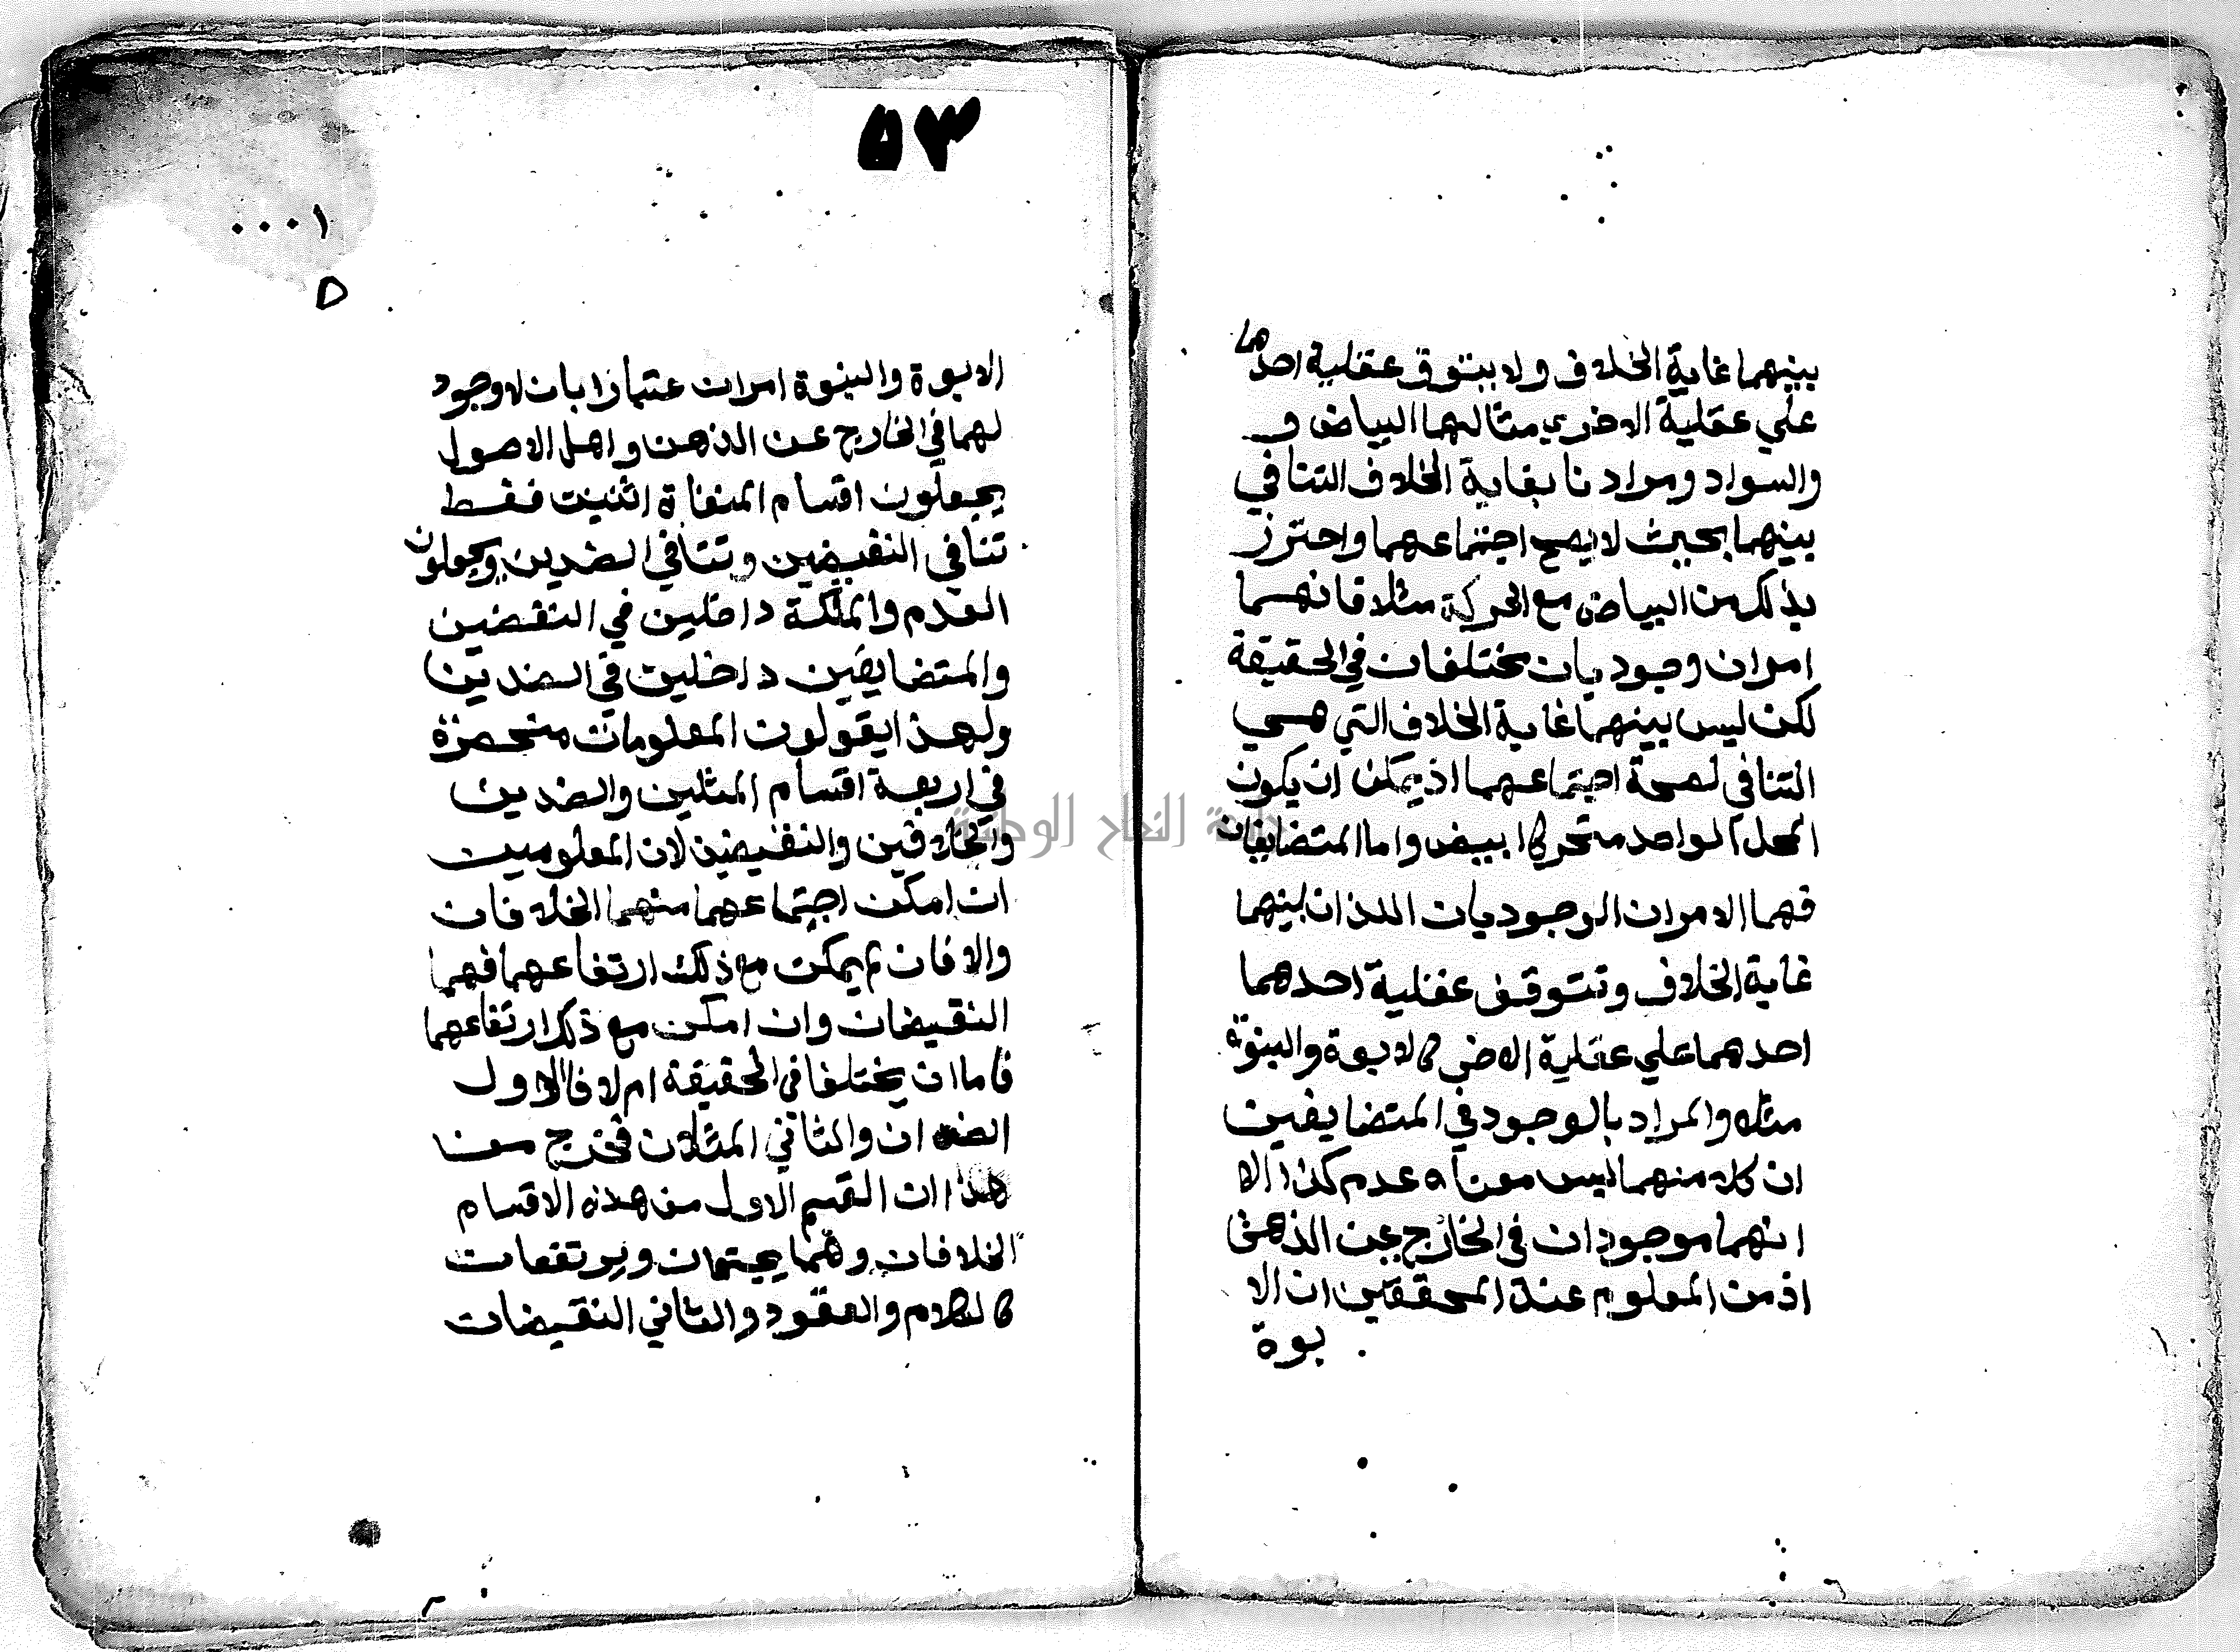 بينهما غاية الخلاف ولا يتوقف عقلية احدهما
علي عقلية الاخري مثالهما البياض و
والسواد ومرادنا بغاية الخلاف التنافي
بينهما بحيث لا يصح اجتماعهما واحترز
بذلك من البياض مع الحركة مثلا فانهما
امران وجوديان مختلفان في الحقيقة
لكن ليس بينهما غاية الخلاف التي هي
التنافي لصحة اجتماعهما اذ يمكن ان يكون
المحل الواحد متحركا ابيض واما المتضايفان
فهما الامران الوجوديان اللذان بينهما
غاية الخلاف وتتوقف عقلية احدهما
احدهما علي عقلية الاخر كالابوة والبنوة
مثلا والمراد بالوجود في المتضايفين
ان كلا منهما ليس معناه عدم كذا الا
انهما موجودان في الخارج عن الذهن
اذ من المعلوم عند المحققين ان الا
بوة
٥٣
٠٠٠١
٥
الابوة والبنوة امران اعتباريان لا وجود
لهما في الخارج عن الذهن واهل الاصول
يجعلون اقسام المنفاة اثنين فقط
تنافي النقيضين وتنافي الضدين ويجعلون
العدم والملكة داخلين في النقضين
والمتضايفين داخلين في الضدين
ولهذا يقولون المعلومات منحصرة
في اربعة اقسام المثلين والضدين
والخلافين والنقيضين لان المعلومين
ان امكن اجتماعهما منهما الخلافان
والا فان لم يمكن مع ذلك ارتفاعهما فهما
النقيضان وان امكن مع ذلك ارتفاعهما
فاما ان يختلفا في الحقيقة ام لا فالاول
الضدان والثاني المثلان فخرج من
هذا ان القسم الاول من هذه الاقسام
الخلافان وهما يجتمعان ويرتفعان
كالكلام والعقود والثاني النقيضان
جامعة النجاح الوطنية